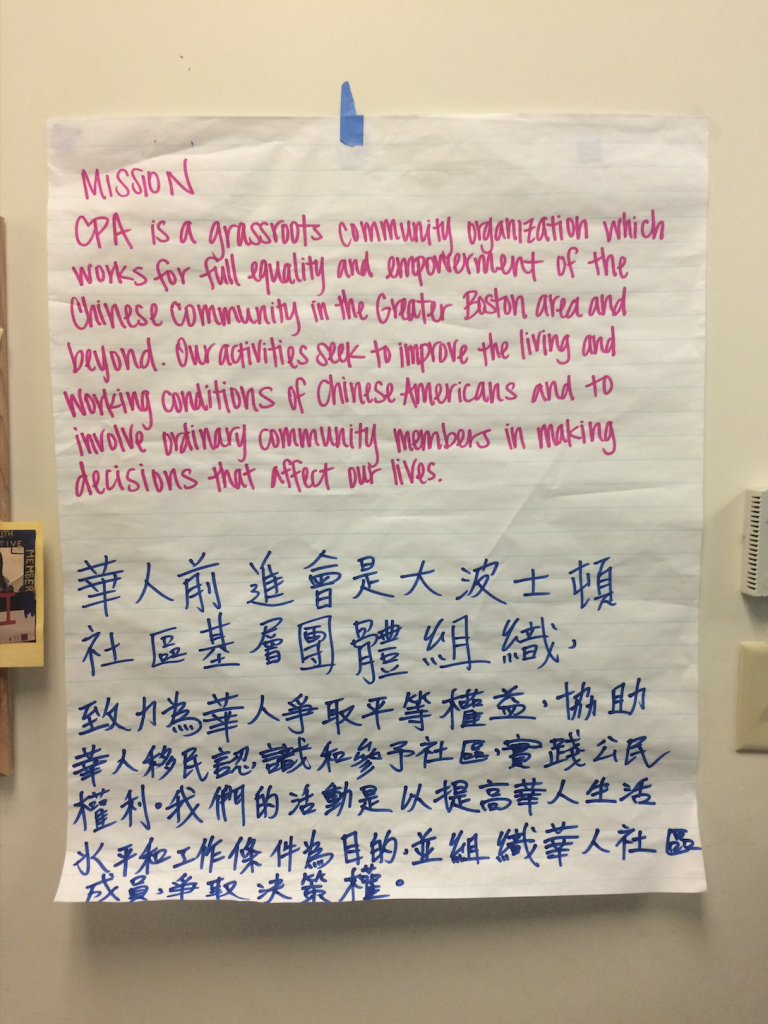 MISSION
CPA is a grassroots community organization which
works for full equality and empowerment of the
Chinese community in the Greater Boston area and
beyond. Our activities seek to improve the living and
working conditions of Chinese Americans and to
involve ordinary community members in making
decisions that affect our lives.
華人前進會是大波士頓
社區基層團體組織,
致力為華人爭取平等權益,協助
華人移民認識和參予社區,實踐公民
權利。我們的活動是以提高華人生活
水平和工作條件為目的,並組織華人社區
成員,爭取決策權。
MEMBER